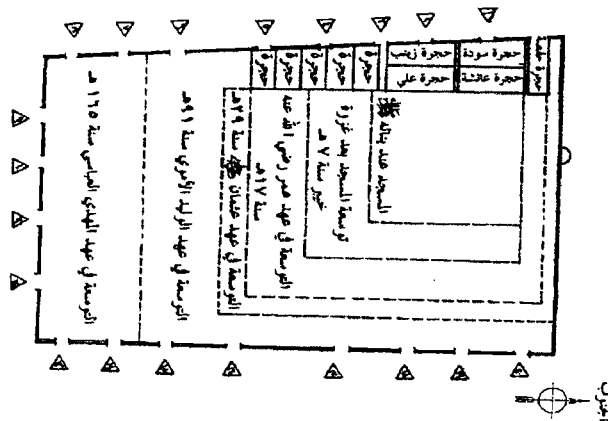 حجرة حفصة
حجرة سودة
حجرة زينب
حجرة عائشة
حجرة علي
حجرة
حجرة
حجرة
حجرة
حجرة
المسجد عند بنائه ﷺ
توسعة المسجد بعد غزوة
خيبر سنة ٧ هـ
التوسعة في عهد عمر رضي الله عنه
سنة ١٧هـ
التوسعة في عهد عثمان ﷺ سنة ٢٩هـ
التوسعة في عهد الوليد الأموي سنة ٩١هـ
التوسعة في عهد المهدي العباسي سنة ١٦٥ هـ
الجنوب